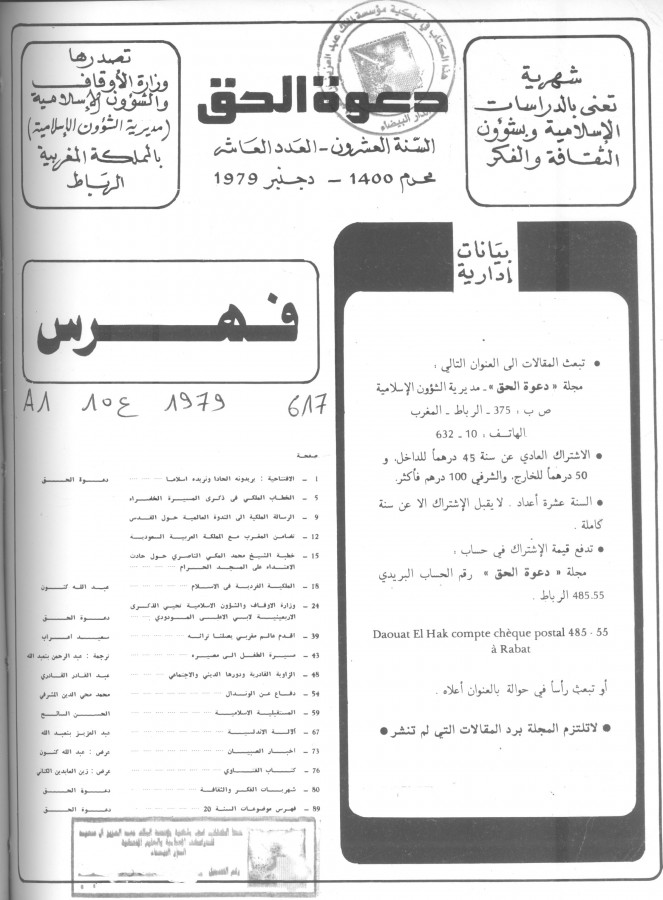 شهرية
تعنى بالدراسات
الإسلامية وبشؤون
الثقافة والفكر
دعوة الحق
السنة العشرون - العدد العاشر
محرم 1400 - دجنبر 1979
تصدرها
وزارة الأوقاف
والشؤون الإسلامية
(مديرية الشؤون الإسلامية)
بالمملكة المغربية
الرباط
بيانات
إدارية
• تبعث المقالات الى العنوان التالي :
مجلة « دعوة الحق » ـ مديرية الشؤون الإسلامية
ص ب ، 375 ـ الرباط ـ المغرب
الهاتف : 10 ـ 632
• الاشتراك العادي عن سنة 45 درهماً للداخل، و
50 درهماً للخارج، والشرفي 100 درهم فأكثر.
• السنة عشرة أعداد . لا يقبل الإشتراك الا عن سنة
كاملة .
• تدفع قيمة الإشتراك في حساب :
مجلة « دعوة الحق » رقم الحساب البريدي
485.55 الرباط .
Daouat El Hak compte chèque postal 485 - 55
à Rabat
أو تبعث رأساً في حوالة بالعنوان أعلاه .
• لاتلتزم المجلة برد المقالات التي لم تنشر •
فهرس
A1 10ع 1979 617
صفحة
1 - الافتتاحية : يريدونه الحادا ونريده اسلاما دعوة الحق
5 - الخطاب الملكي في ذكرى المسيرة الخضراء
9 - الرسالة الملكية الى الندوة العالمية حول القدس
12 - تضامن المغرب مع المملكة العربية السعودية
15 - خطبة الشيخ محمد المكي الناصري حول حادث
الاعتداء على المسجد الحرام
18 - الملكية الفردية في الاسلام عبد الله كنون
24 - وزارة الاوقاف والشؤون الاسلامية تحيي الذكرى
الاربعينية لابي الاعلى المودودي دعوة الحق
39 - اقدم عالم مغربي بصلنا تراثه سعيد اعراب
43 - مسيرة الطفل الى مصيره ترجمة : عبد الرحمن بنعبد الله
48 - الزاوية القادرية ودورها الديني والاجتماعي عبد القادر القادري
54 - دفاع عن الوندال محمد محي الدين المشرفي
59 - المستقبلية الاسلامية الحسن السائح
67 - آلة الاندلسية عبد العزيز بنعبد الله
73 - اخبار الصبيان عرض : عبد الله كنون
76 - كتاب الفتاوي عرض : زين العابدين الكتاني
80 - شهريات الفكر والثقافة دعوة الحق
89 - فهرس موضوعات السنة 20 دعوة الحق